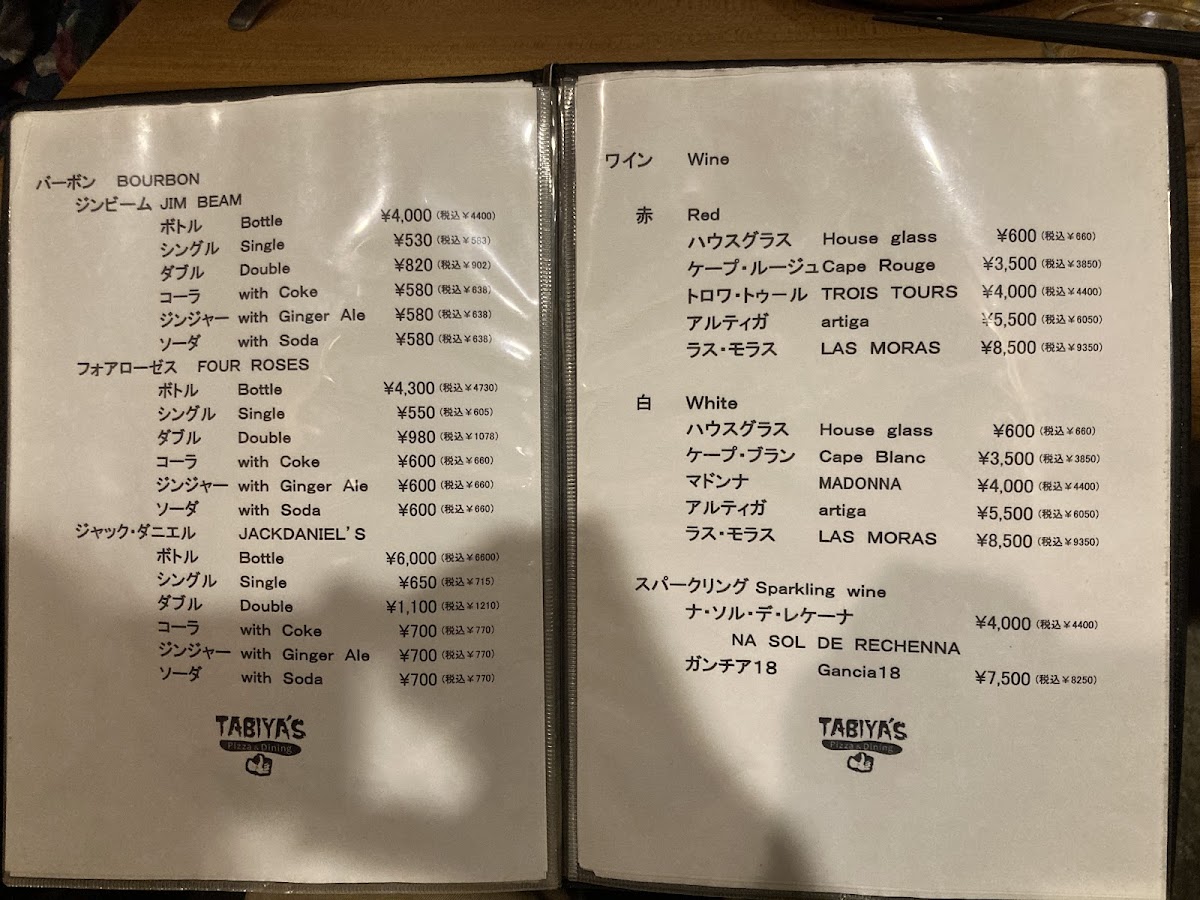 バーボン BOURBON
ジンビーム JIM BEAM
ボトル Bottle ¥4,000 (税込¥4400)
シングル Single ¥530 (税込¥583)
ダブル Double ¥820 (税込¥902)
コーラ with Coke ¥580 (税込¥638)
ジンジャー with Ginger Ale ¥580 (税込¥638)
ソーダ with Soda ¥580 (税込¥638)
フォアローゼス FOUR ROSES
ボトル Bottle ¥4,300 (税込¥4730)
シングル Single ¥550 (税込¥605)
ダブル Double ¥980 (税込¥1078)
コーラ with Coke ¥600 (税込¥660)
ジンジャー with Ginger Ale ¥600 (税込¥660)
ソーダ with Soda ¥600 (税込¥660)
ジャック・ダニエル JACKDANIEL'S
ボトル Bottle ¥6,000 (税込¥6600)
シングル Single ¥650 (税込¥715)
ダブル Double ¥1,100 (税込¥1210)
コーラ with Coke ¥700 (税込¥770)
ジンジャー with Ginger Ale ¥700 (税込¥770)
ソーダ with Soda ¥700 (税込¥770)
TABIYA'S
Pizza & Dining
ワイン Wine
赤 Red
ハウスグラス House glass ¥600 (税込¥660)
ケープ・ルージュ Cape Rouge ¥3,500 (税込¥3850)
トロワ・トゥール TROIS TOURS ¥4,000 (税込¥4400)
アルティガ artiga ¥5,500 (税込¥6050)
ラス・モラス LAS MORAS ¥8,500 (税込¥9350)
白 White
ハウスグラス House glass ¥600 (税込¥660)
ケープ・ブラン Cape Blanc ¥3,500 (税込¥3850)
マドンナ MADONNA ¥4,000 (税込¥4400)
アルティガ artiga ¥5,500 (税込¥6050)
ラス・モラス LAS MORAS ¥8,500 (税込¥9350)
スパークリング Sparkling wine
ナ・ソル・デ・レケーナ ¥4,000 (税込¥4400)
NA SOL DE RECHENNA
ガンチア18 Gancia18 ¥7,500 (税込¥8250)
TABIYA'S
Pizza & Dining